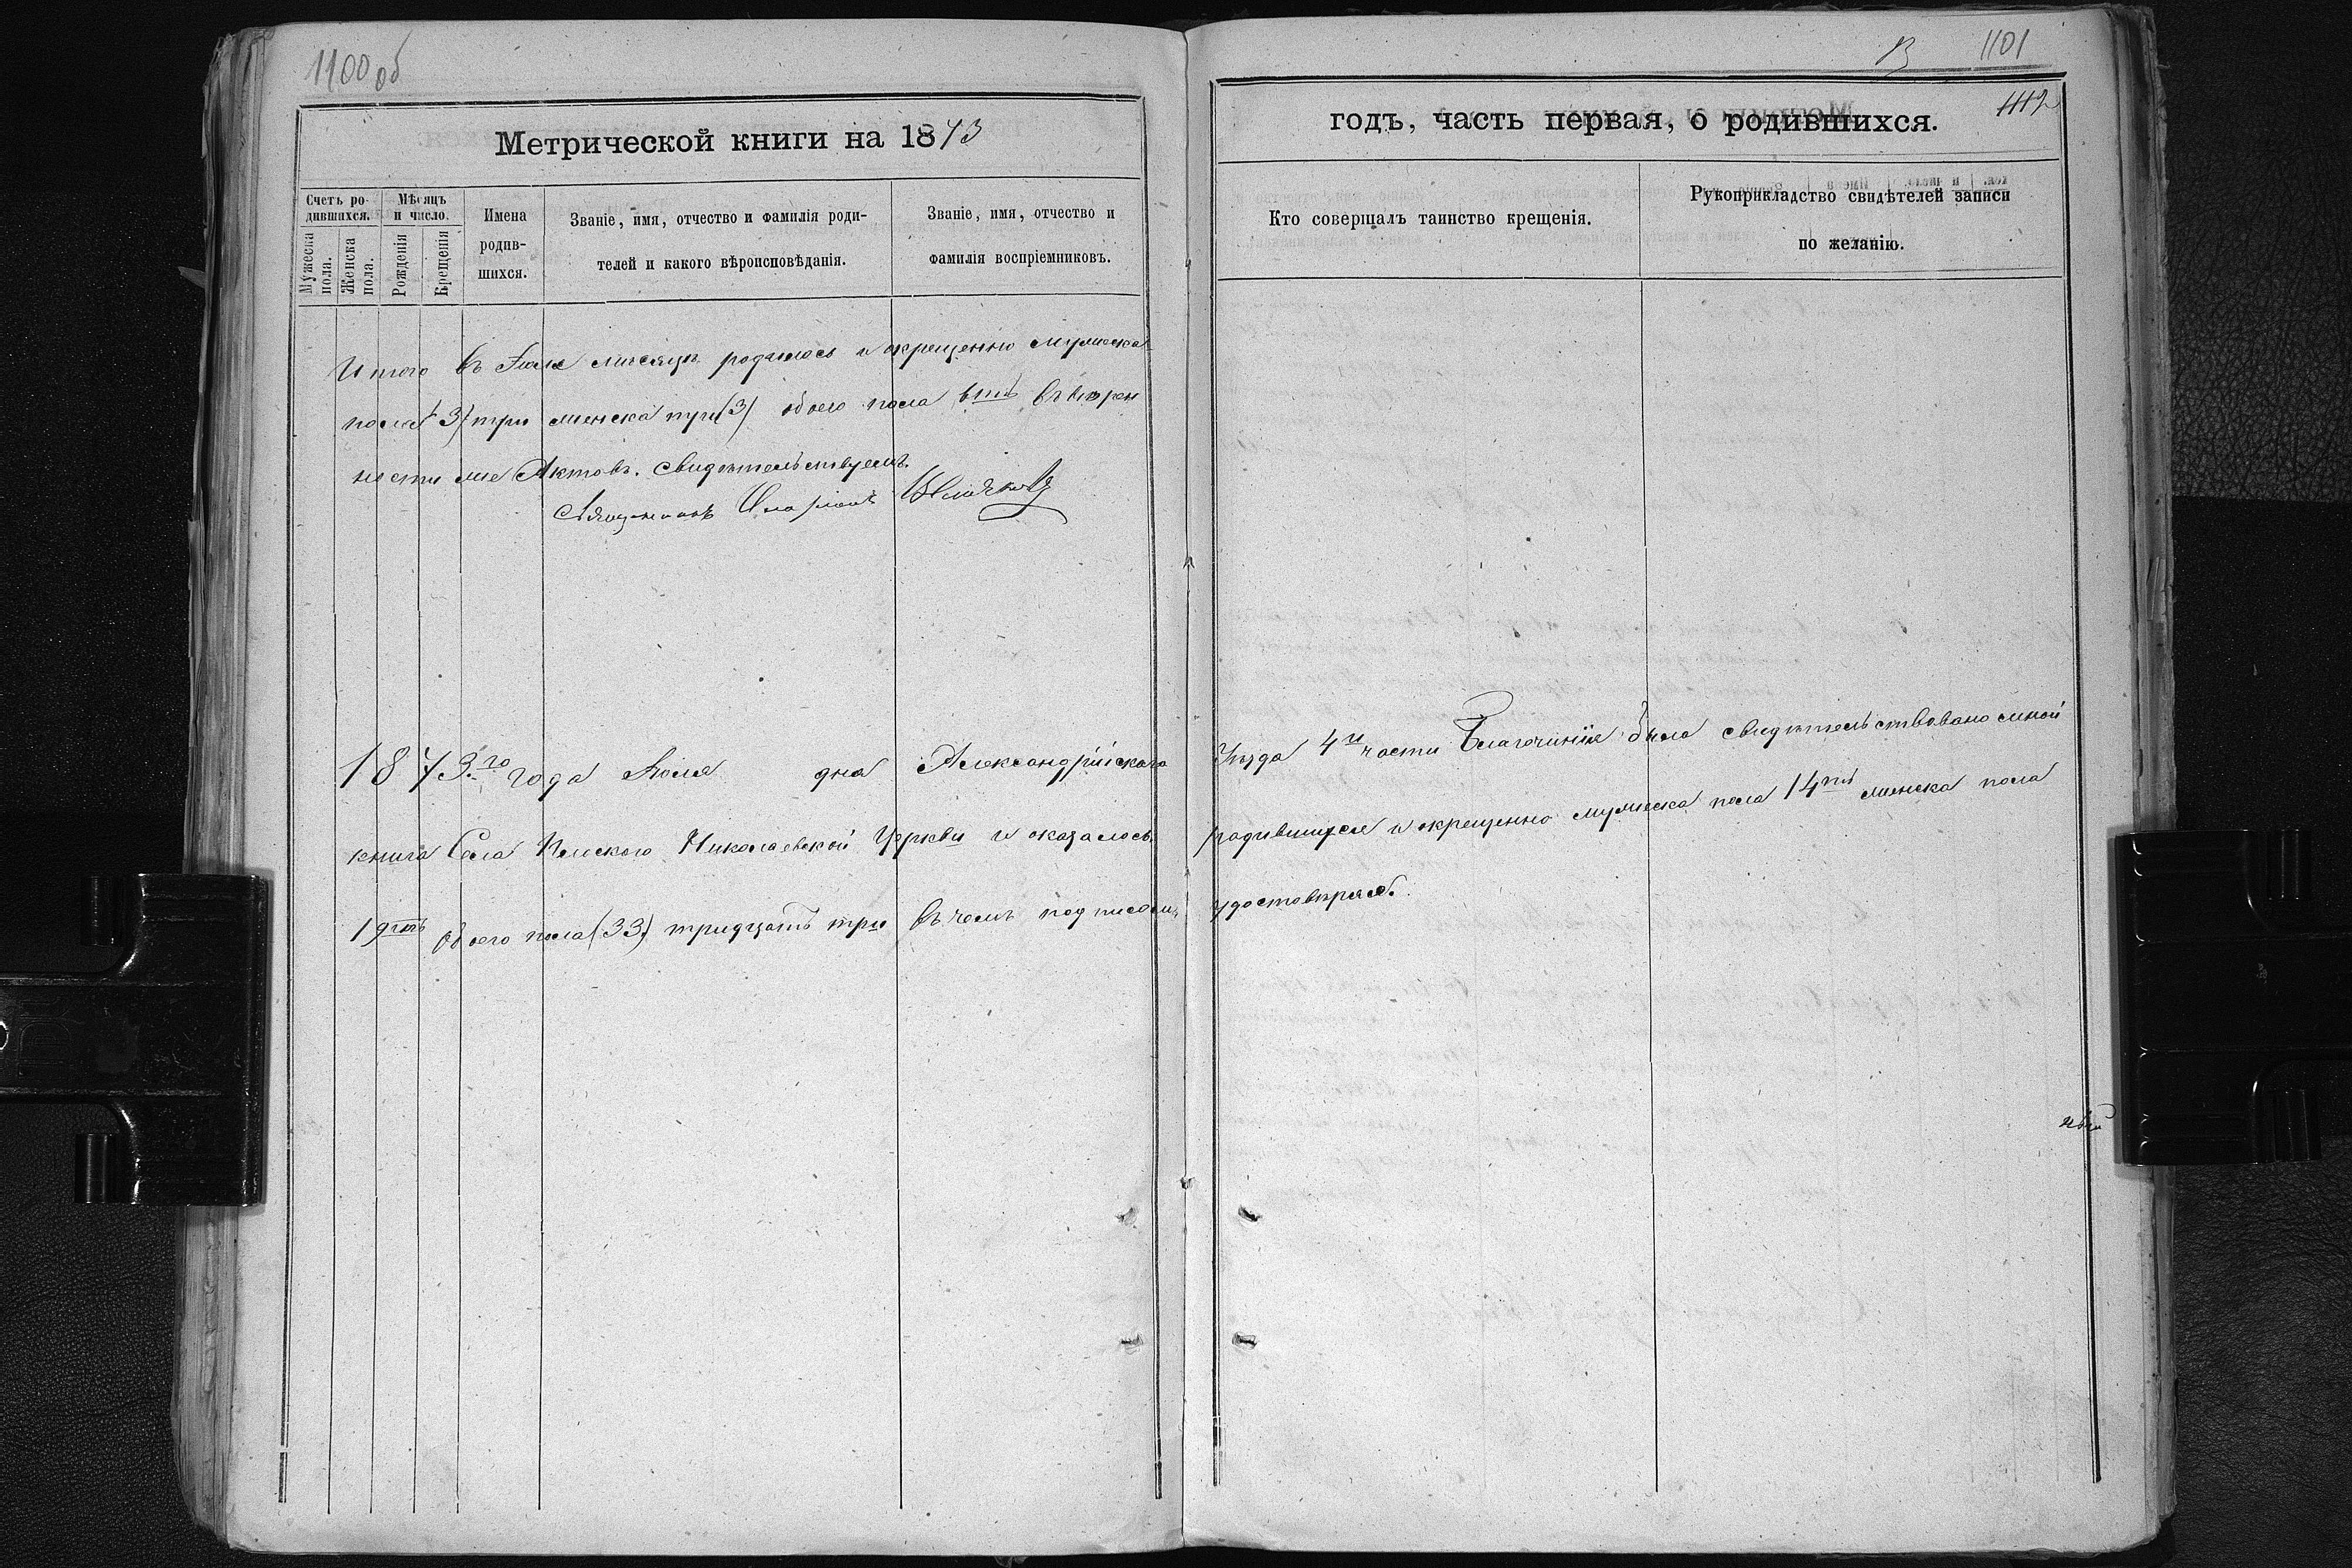 1100 об
Метрической книги на 1873
Счетъ ро-
дившихся.
Мужеска пола.
Женска пола.
Мѣсяцъ
и число.
Рожденія
Крещенія
Имена
родив-
шихся.
Званіе, имя, отчество и фамилія роди-
телей и какого вѣроисповѣданія.
Званіе, имя, отчество и
фамилія воспріемниковъ.
Итого въ Іюле мѣсяцѣ родилось и окрещенно мужеска
пола (3) три женска три (3) обоего пола 6ть въ вѣрн
ности же Актовъ. свидѣтельствуемъ.
Священникъ
1873го года Іюля дна Александрійскаго
книга Села Николаевской Церкви и оказалось
19ть обоего пола (33) тридцать три въ чемъ подписомъ
1101
1112
годъ, часть первая, о родившихся.
Кто совершалъ таинство крещенія.
Рукоприкладство свидѣтелей записи
по желанію.
Уѣзда 4й части Благочинія была свидѣтельствовано мной
родившихся и окрещенно мужеска пола 14ть женска пола
удостовѣряю.